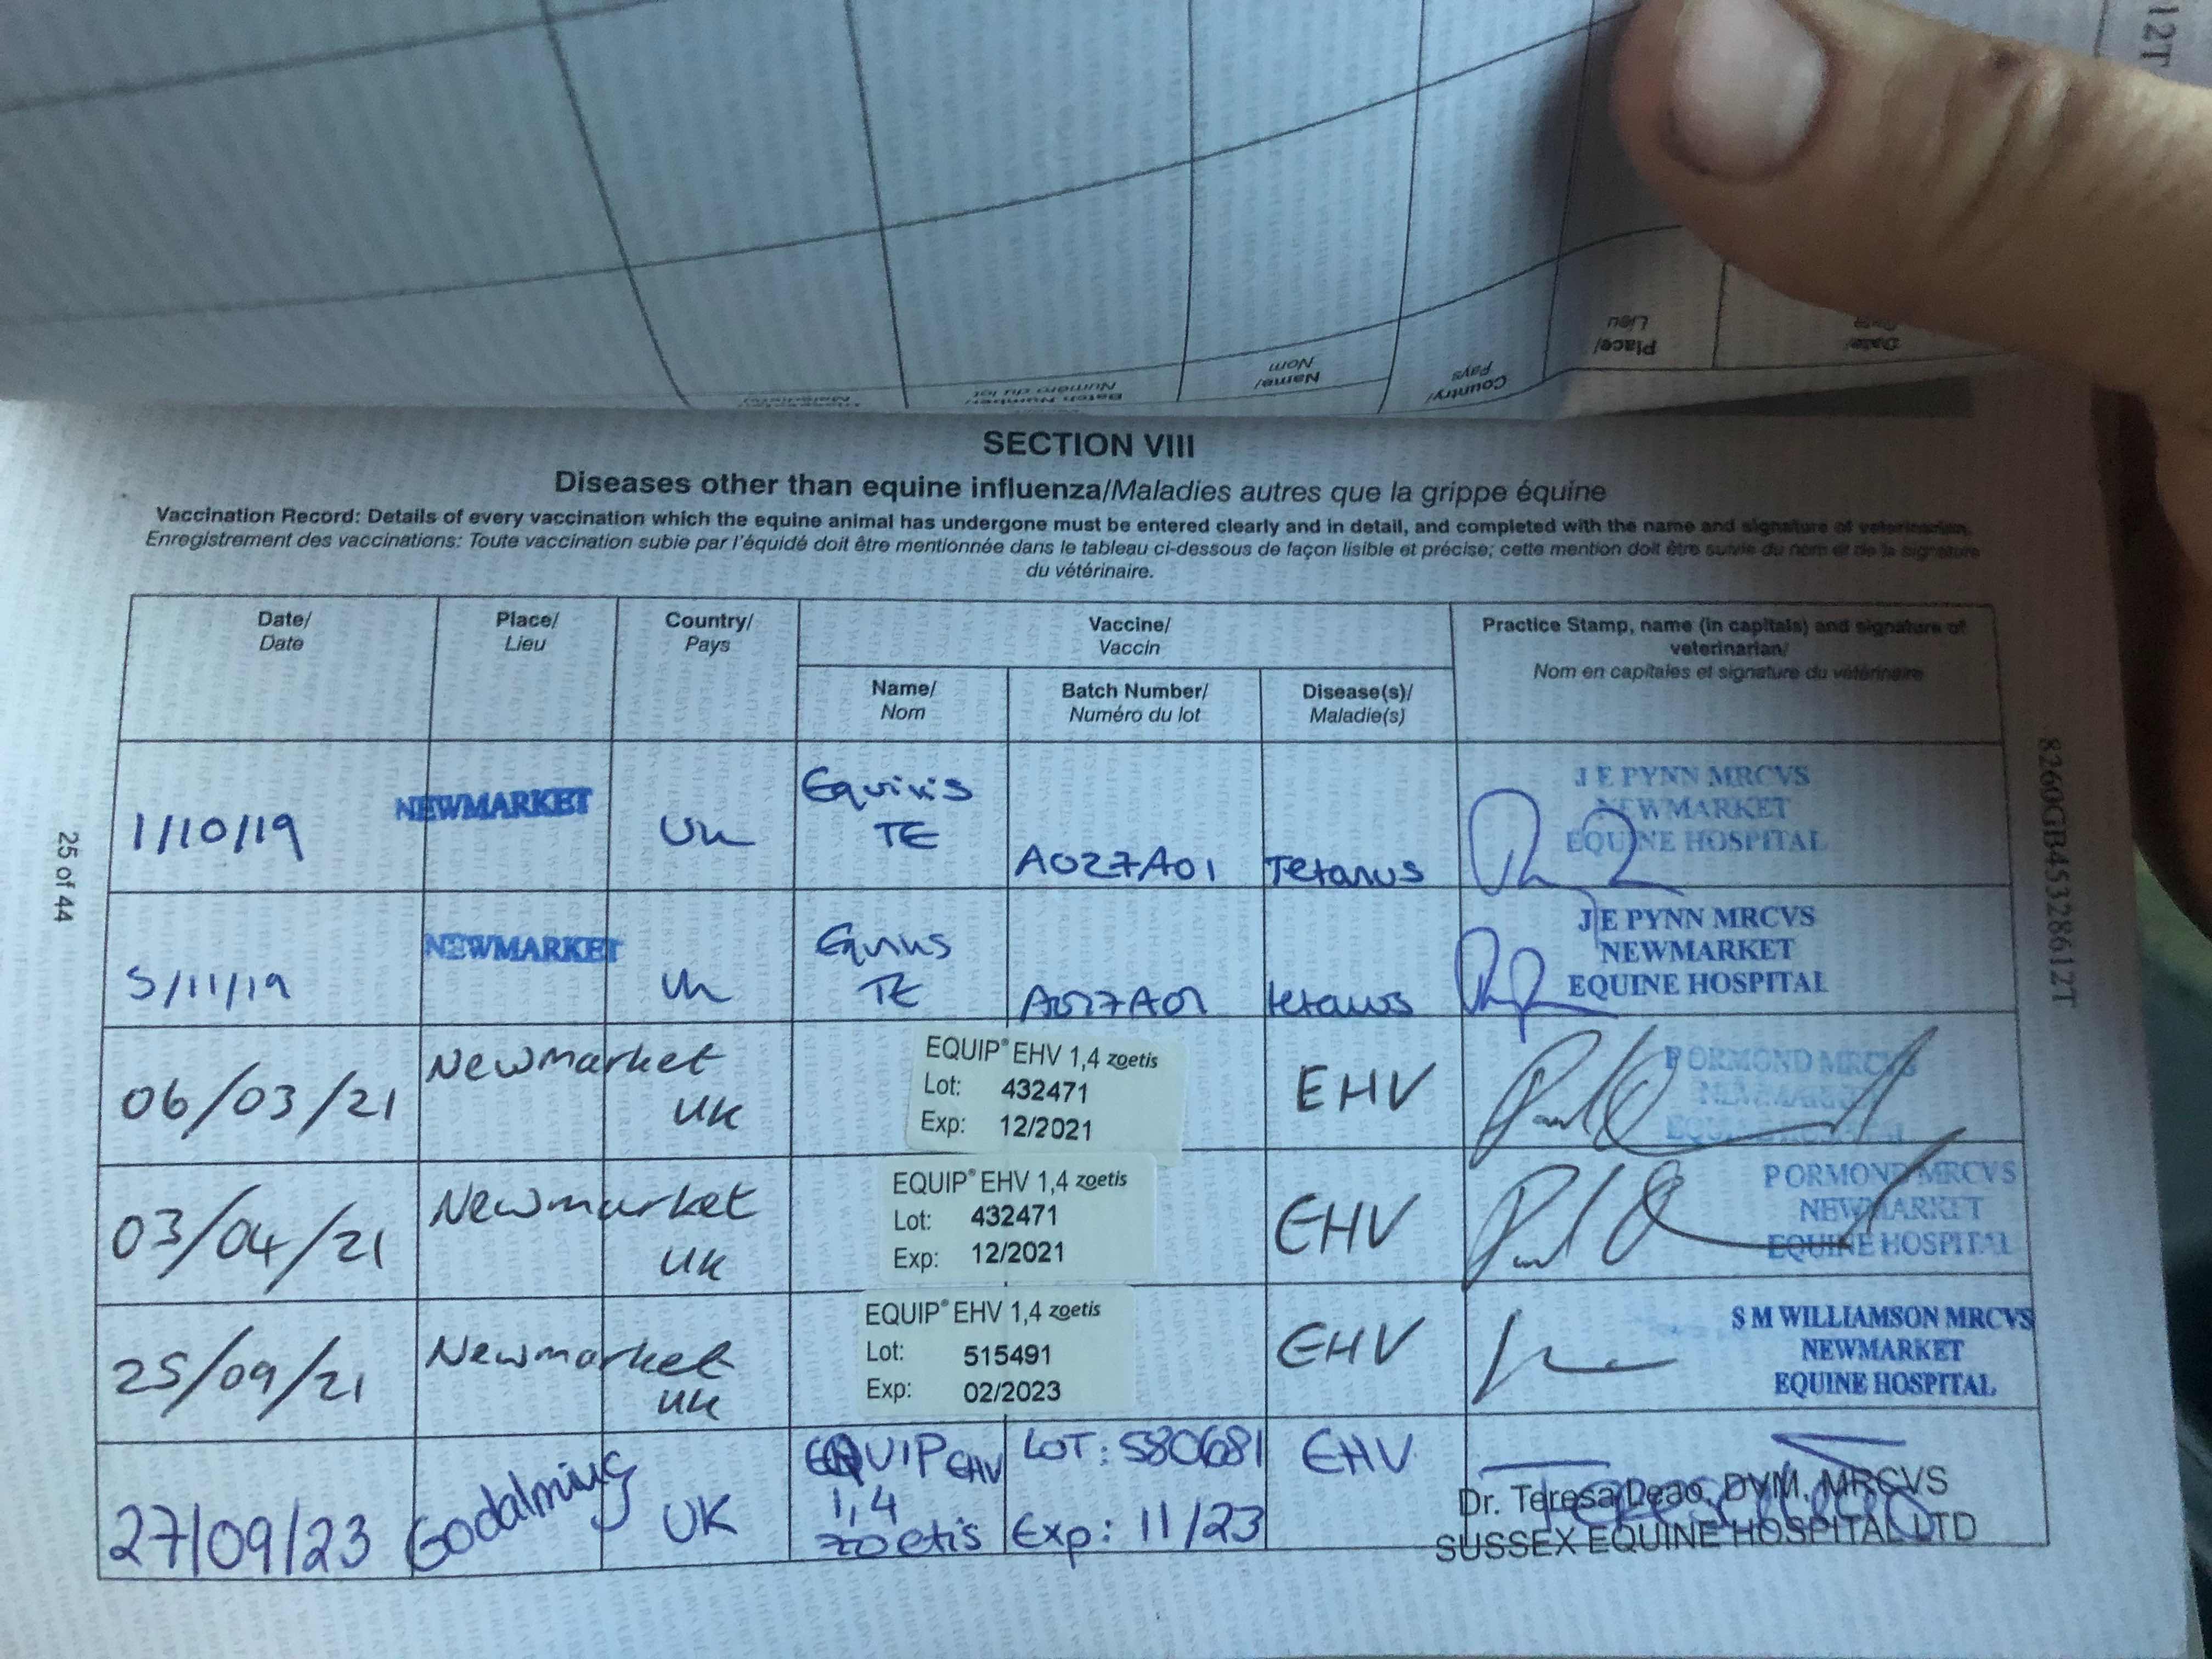 12T
Date/
Place/
Lieu
Country/
Pays
Name/
Nom
Batch Number/
Numéro du lot
SECTION VIII
Diseases other than equine influenza/Maladies autres que la grippe équine
Vaccination Record: Details of every vaccination which the equine animal has undergone must be entered clearly and in detail, and completed with the name and signature of veterinarian.
Enregistrement des vaccinations: Toute vaccination subie par l'équidé doit être mentionnée dans le tableau ci-dessous de façon lisible et précise; cette mention doit être suivie du nom et de la signature
du vétérinaire.
Date/
Date
Place/
Lieu
Country/
Pays
Vaccine/
Vaccin
Practice Stamp, name (in capitals) and signature of
veterinarian/
Nom en capitales et signature du vétérinaire
Name/
Nom
Batch Number/
Numéro du lot
Disease(s)/
Maladie(s)
1/10/19
NEWMARKET
UK
TE
A027A01
Tetanus
J E PYNN MRCVS
NEWMARKET
EQUINE HOSPITAL
5/11/19
NEWMARKET
UK
TE
A027A01
tetanus
J E PYNN MRCVS
NEWMARKET
EQUINE HOSPITAL
06/03/21
Newmarket
UK
EQUIP® EHV 1,4 zoetis
Lot: 432471
Exp: 12/2021
EHV
P ORMOND MRCVS
NEWMARKET
EQUINE HOSPITAL
03/04/21
Newmarket
UK
EQUIP® EHV 1,4 zoetis
Lot: 432471
Exp: 12/2021
EHV
P ORMOND MRCVS
NEWMARKET
EQUINE HOSPITAL
25/09/21
Newmarket
UK
EQUIP® EHV 1,4 zoetis
Lot: 515491
Exp: 02/2023
EHV
S M WILLIAMSON MRCVS
NEWMARKET
EQUINE HOSPITAL
27/09/23
Godalming
UK
EQUIP EHV
1,4
zoetis
LOT: 580681
Exp: 11/23
EHV
Dr. Teresa Leao, DVM, MRCVS
SUSSEX EQUINE HOSPITAL LTD
25 of 44
8260GB45328612T